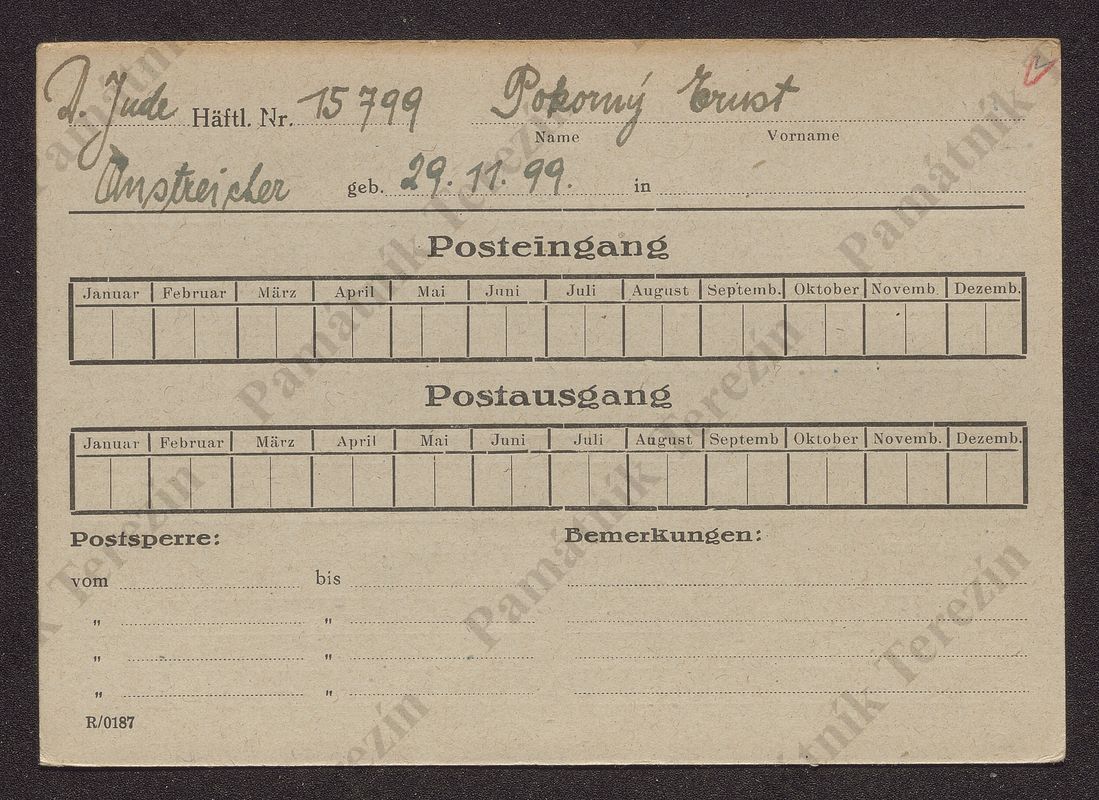 D. Jude Häftl. Nr. 15799 Pokorný Ernst
Name Vorname
Anstreicher geb. 29. 11. 99. in
Posteingang
Januar Februar März April Mai Juni Juli August Septemb. Oktober Novemb. Dezemb.
Postausgang
Januar Februar März April Mai Juni Juli August Septemb Oktober Novemb. Dezemb.
Postsperre: Bemerkungen:
vom bis
" "
" "
" "
R/0187
Památník Terezín